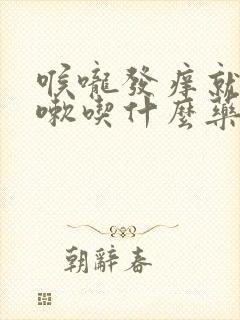 喉嚨發痒就
嗽喫什麽藥
朝辭春